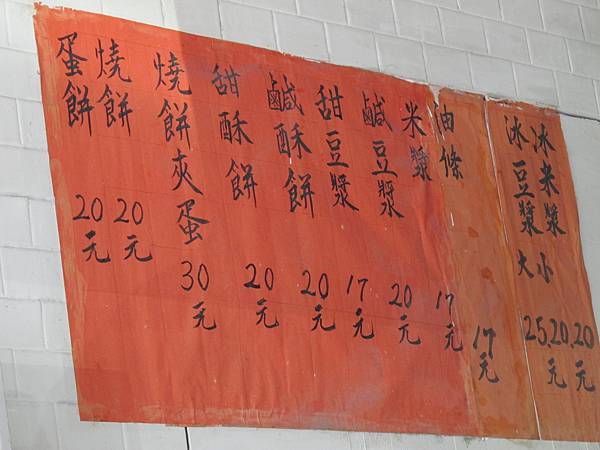 冰米漿 20元
冰豆漿 大小 25.20.元
油條 17元
米漿 17元
鹹豆漿 20元
甜豆漿 17元
鹹酥餅 20元
甜酥餅 20元
燒餅夾蛋 30元
燒餅 20元
蛋餅 20元